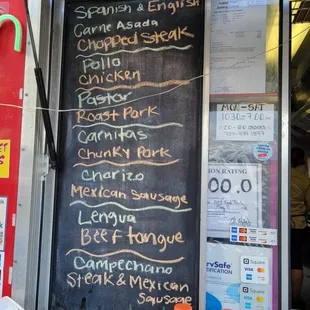 Spanish & English
Carne Asada
Chopped steak
Pollo
Chicken
Pastor
Roast Pork
Carnitas
Chunky Pork
Charizo
Mexican Sausage
Lengua
Beef tongue
Campechano
Steak & Mexican
Sausage
MON - SAT
10:30 - 7:00
ION RATING
00.0
Square
VISA
rvSafe
ification
Square
VISA